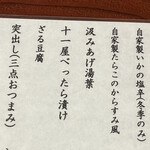 自家製いかの塩辛(冬季のみ)
自家製たらこのからすみ風
汲みあげ湯葉
十一屋べったら漬け
ざる豆腐
突出し(三点おつまみ)